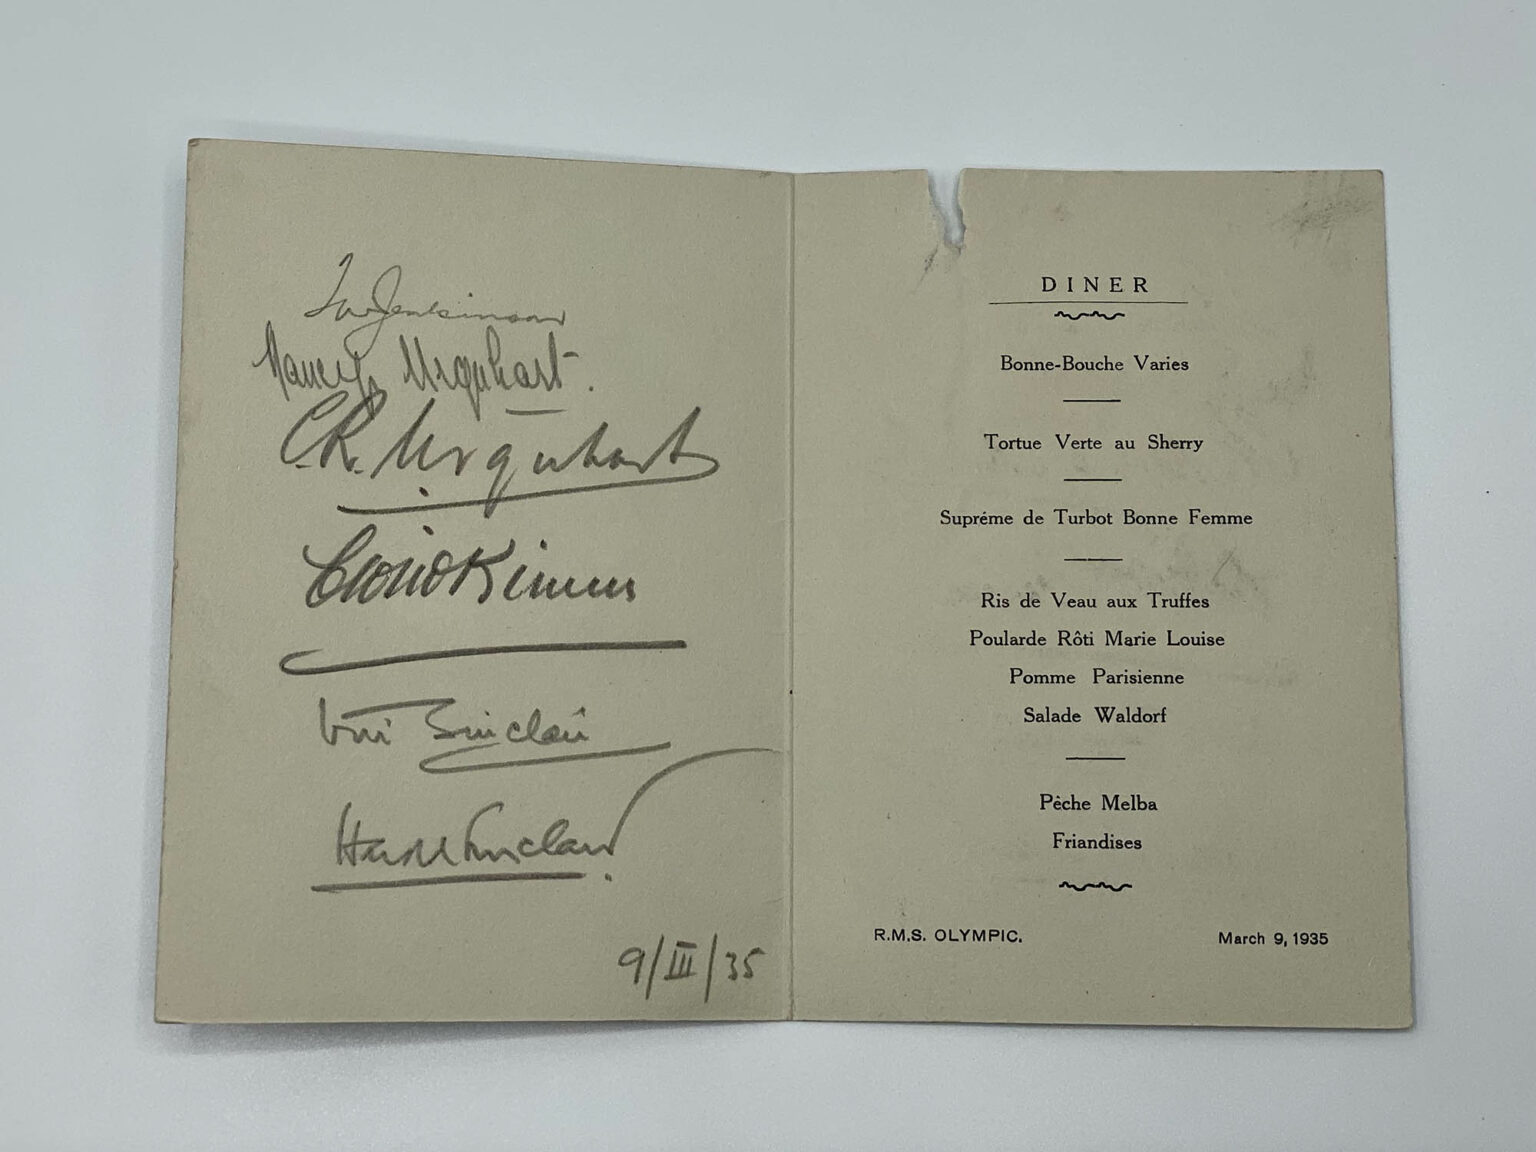 Jenkinson
Nancy Urquhart.
C.R. Urquhart
Sinclair
Harold Sinclair
9/III/35
DINER
Bonne-Bouche Varies
Tortue Verte au Sherry
Supréme de Turbot Bonne Femme
Ris de Veau aux Truffes
Poularde Rôti Marie Louise
Pomme Parisienne
Salade Waldorf
Pêche Melba
Friandises
R.M.S. OLYMPIC.
March 9, 1935